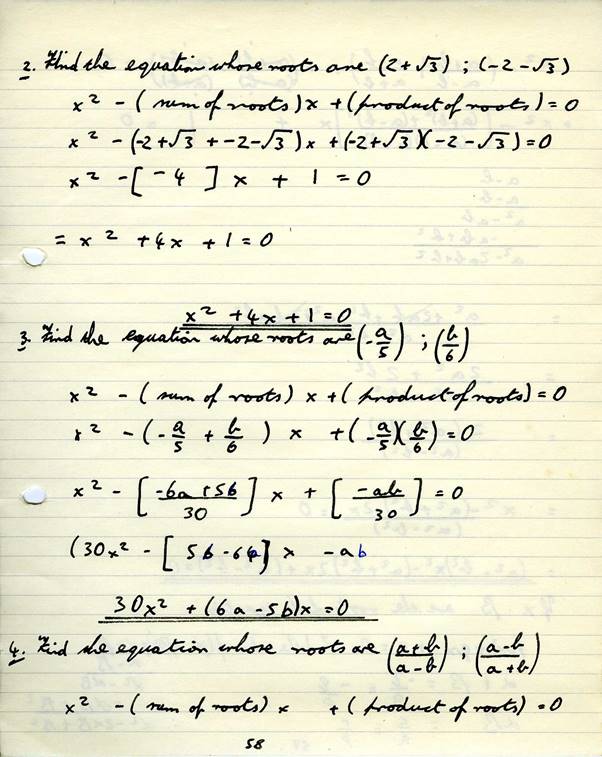 2. Find the equation whose roots are (2+√3) ; (-2-√3)
x² - (sum of roots)x + (product of roots) = 0
x² - (-2+√3 + -2-√3)x + (-2+√3)(-2-√3) = 0
x² - [-4] x + 1 = 0
= x² + 4x + 1 = 0
x² + 4x + 1 = 0
3. Find the equation whose roots are (-a/5) ; (b/6)
x² - (sum of roots) x + (product of roots) = 0
x² - (-a/5 + b/6) x + (-a/5)(b/6) = 0
x² - [-6a+5b/30] x + [-ab/30] = 0
(30x² - [5b-6a] x - ab
30x² + (6a-5b)x = 0
4. Find the equation whose roots are (a+b/a-b) ; (a-b/a+b)
x² - (sum of roots) x + (product of roots) = 0
58